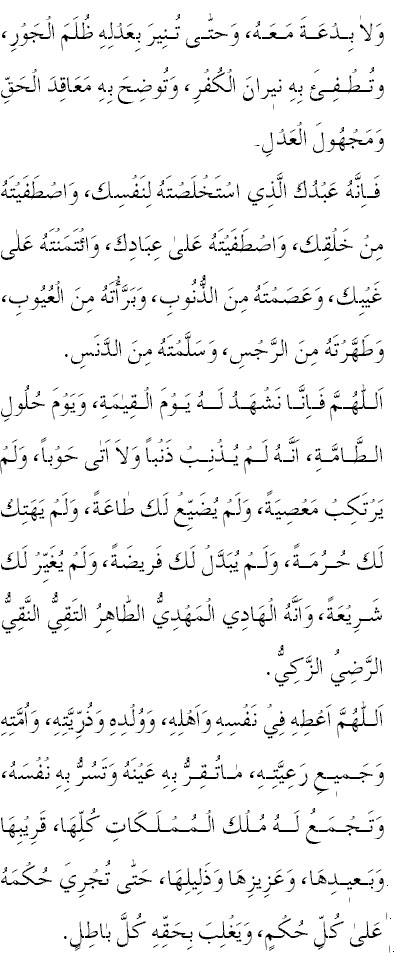 وَلاٰ بِـدْعَـةَ مَـعَـهُ، وَحَتّٰـى تُـنِيرَ بِعَدْلِهِ ظُلَمَ الْجَوْرِ،
وتُـطْـفِـئَ بِهِ نيرانَ الْكُفْرِ، وَتُوضِحَ بِهِ مَعَاقِدَ الْحَقِّ
وَمَجْهُولَ الْعَدْلِ۔
فَـإِنَّهُ عَبْدُكَ الَّذِي اسْتَخْلَصْتَهُ لِنَفْسِكَ، وَاصْطَفَيْتَهُ
مِنْ خَلْقِكَ، وَاصْطَفَيْتَهُ عَلىٰ عِبَادِكَ، وَائْتَمَنْتَهُ عَلىٰ
غَيْبِكَ، وَعَصَمْتَهُ مِنَ الذُّنُوبِ، وَبَرَّأْتَهُ مِنَ الْعُيُوبِ،
وَطَهَّرْتَهُ مِنَ الرَّجْسِ، وَسَلَّمْتَهُ مِنَ الدَّنَسِ.
اَللّٰهُـمَّ فَـإِنَّـا نَشْهَـدُ لَـهُ يَـوْمَ الْـقِيٰمَةِ، وَيَوْمَ حُلُولِ
الـطَّـامَّـةِ، اَنَّـهُ لَـمْ يُـذْنِـبْ ذَنْباً وَلاَ اَتٰى حَوْباً، وَلَمْ
يَرْتَكِبْ مَعْصِيَةً، وَلَمْ يُضَيِّعْ لَكَ طٰاعَةً، وَلَمْ يَهَتِكْ
لَكَ حُـرْمَـةً، وَلَـمْ يُبَدَّلْ لَكَ فَريضَةً، وَلَمْ يُغَيِّرْ لَكَ
شَـرِيْعَةً، وَاَنَّهُ الْهَادِي الْمَهْدِيُّ الطّٰاهِرُ التَقِيُّ النَّقِيُّ
الرَّضِيُ الزَّكِيُّ.
اَللّٰهُمَّ اَعْطِهِ فِيْ نَفْسِهِ وَاَهْلِهِ، وَوُلْدِهِ وَذُرِّيَّتِهِ، وَاُمَّتِهِ
وَجَـميـعِ رَعِيَّتِـهِ، مٰـاتُـقِـرُّ بِهِ عَيْنَهُ وَتَسُرُّ بِهِ نَفْسَهُ،
وَتَـجْـمَـعُ لَـهُ مُـلْكَ الْـمُـمْـلَـكَاتِ كُلِّهَا، قَرِيْبِهَا
وَبَـعيـدِهَا، وَعَزِيزِهَا وَذَلِيلِهَا، حَتّٰى تُجْرِيَ حُكْمَهُ
عَلىٰ كُلِّ حُكْمٍ، وَيَغْلِبَ بِحَقِّهِ كُلَّ بٰاطِلٍ.